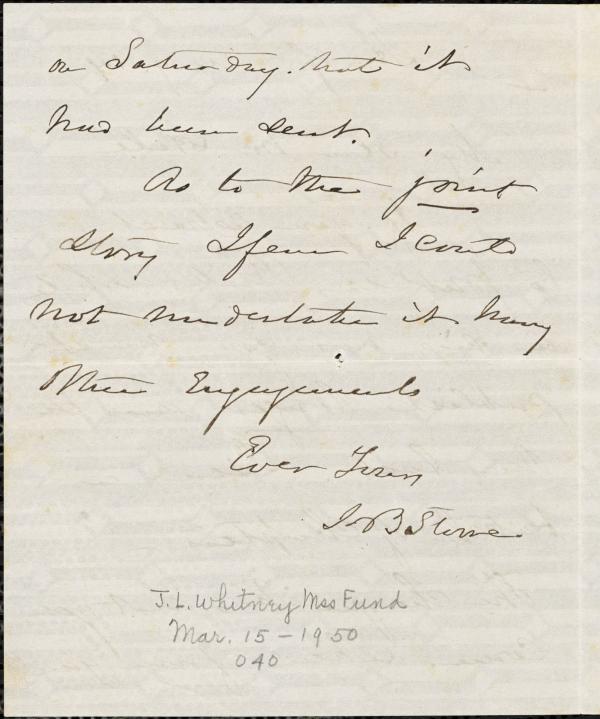 on Saturday. that it
had been sent.
As to the joint
story I fear I could
not undertake it having
other Engagements
Ever Yours
H B Stowe
J. L. Whitney Mss Fund
Mar. 15 - 1950
040